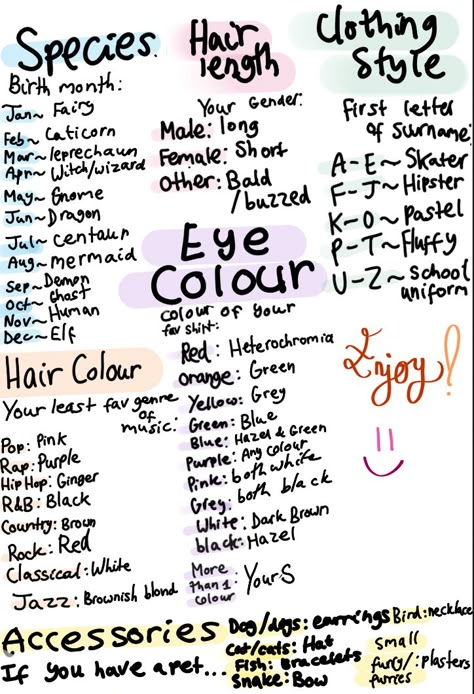 Species
Birth month:
Jan~ Fairy
Feb~ Caticorn
Mar~ leprechaun
Apr~ Witch/wizard
May~ Gnome
Jun~ Dragon
Jul~ centaur
Aug~ mermaid
Sep~ Demon
Oct~ Ghost
Nov~ Human
Dec~ Elf
Hair
length
Your Gender:
Male: long
Female: Short
Other: Bald
/buzzed
Clothing
Style
First letter
of Surname:
A-E~ Skater
F-J~ Hipster
K-O~ pastel
P-T~ Fluffy
U-Z~ school
uniform
Eye
Colour
colour of your
fav shirt:
Red: Heterochromia
orange: Green
Yellow: Grey
Green: Blue
Blue: Hazel & Green
Purple: Any colour
Pink: both white
Grey: both black
White: Dark Brown
black: Hazel
More
than 1
colour: Your-S
Enjoy!
=)
Hair Colour
Your least fav genre
of
music:
Pop: Pink
Rap: Purple
Hip Hop: Ginger
R&B: Black
Country: Brown
Rock: Red
Classical: White
Jazz: Brownish blond
Accessories
If you have a pet...
Dog/dogs: earrings
Cat/cats: Hat
Fish: Bracelets
Snake: Bow
Bird: necklace
small
furry/: plasters
furries